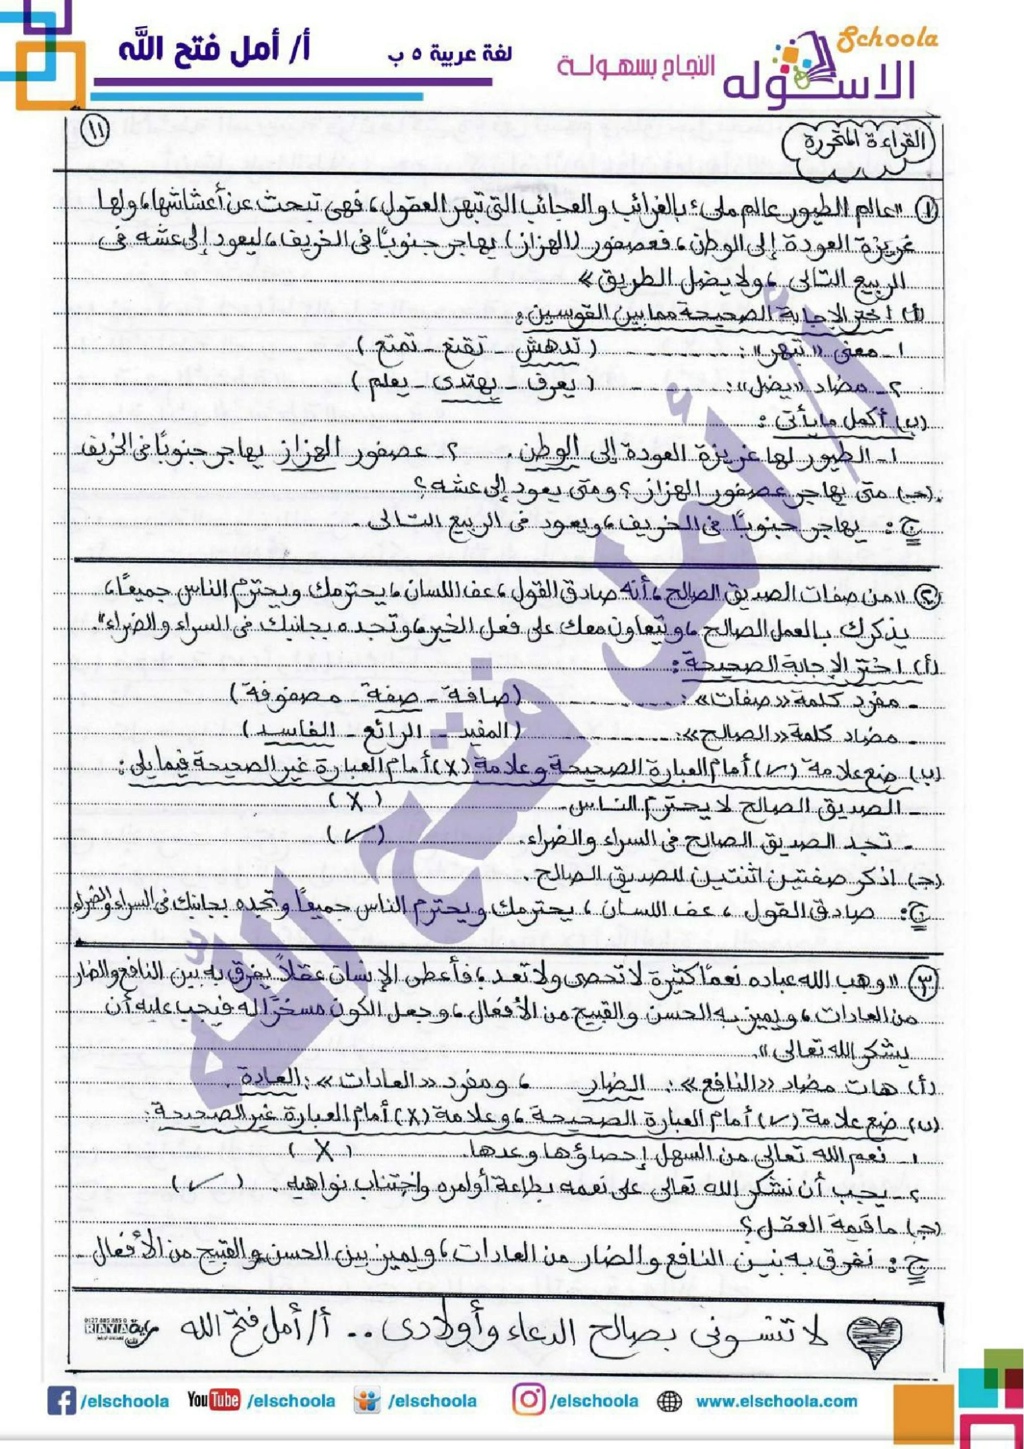 Schoola
الاسكوله
النجاح بسهولة
لغة عربية ٥ ب
أ/ أمل فتح الله
١١
القراءة المتحررة
١ "عالم الطيور عالم ملىء بالغرائب والعجائب التى تبهر العقول، فهى تبحث عن أعشاشها، ولها
غريزة العودة إلى الوطن، فعصفور (الهزاز) يهاجر جنوبًا فى الخريف، ليعود إلى عشه فى
الربيع التالى، ولا يضل الطريق"
(أ) اختر الإجابة الصحيحة مما بين القوسين:
١- معنى "تبهر": ........ (تدهش - تقنع - تمتع)
٢- مضاد "يضل": ........ (يعرف - يهتدى - يعلم)
(ب) أكمل ما يأتى:
١- الطيور لها غريزة العودة إلى الوطن. ٢- عصفور الهزاز يهاجر جنوبًا فى الخريف
(جـ) متى يهاجر عصفور الهزاز؟ ومتى يعود إلى عشه؟
جـ: يهاجر جنوبًا فى الخريف، ويعود فى الربيع التالى.
٢ "من صفات الصديق الصالح، أنه صادق القول، عف اللسان، يحترمك ويحترم الناس جميعًا،
يذكرك بالعمل الصالح، ويتعاون معك على فعل الخير، وتجده بجانبك فى السراء والضراء".
(أ) اختر الإجابة الصحيحة:
- مفرد كلمة "صفات": ........ (صافة - صفة - مصفوفة)
- مضاد كلمة "الصالح": ........ (المفيد - الرائع - الفاسد)
(ب) ضع علامة (✓) أمام العبارة الصحيحة وعلامة (X) أمام العبارة غير الصحيحة فيما يلى:
- الصديق الصالح لا يحترم الناس. (X)
- تجد الصديق الصالح فى السراء والضراء. (✓)
(جـ) اذكر صفتين اثنتين للصديق الصالح.
جـ: صادق القول، عف اللسان، يحترمك ويحترم الناس جميعًا وتجده بجانبك فى السراء والضراء
٣ "وهب الله عباده نعمًا كثيرة لا تحصى ولا تعد، فأعطى الإنسان عقلاً يفرق به بين النافع والضار
من العادات، ويميز به الحسن والقبيح من الأفعال، وجعل الكون مسخرًا له فيجب عليه أن
يشكر الله تعالى".
(أ) هات مضاد "النافع": الضار، ومفرد "العادات": العادة.
(ب) ضع علامة (✓) أمام العبارة الصحيحة، وعلامة (X) أمام العبارة غير الصحيحة:
١- نعم الله تعالى من السهل إحصاؤها وعدها. (X)
٢- يجب أن نشكر الله تعالى على نعمه بطاعة أوامره واجتناب نواهيه. (✓)
(جـ) ما قيمة العقل؟
جـ: نفرق به بين النافع والضار من العادات، ويميز بين الحسن والقبيح من الأفعال
لا تنسونى بصالح الدعاء وأولادى.. أ/ أمل فتح الله
أ/ أمل فتح الله
/elschoola
YouTube /elschoola
/elschoola
/elschoola
www.elschoola.com